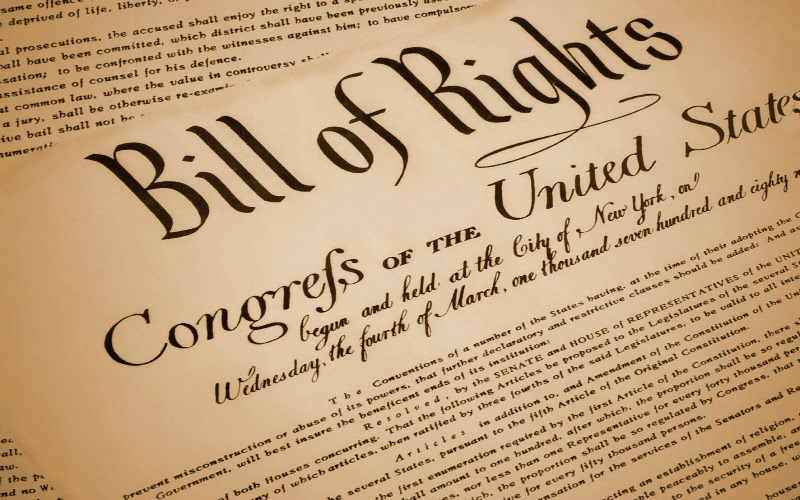 same offence
deprived of life, liberty, or
al prosecutions, the accused shall enjoy the right to a
all have been committed, which district shall have been previously
sation; to be confronted with the witnesses against him; to have compulsory
assistance of counsel for his defence.
at common law, where the value in controversy shall
a jury, shall be otherwise re-exami
ive bail shall not be
numerati
Bill of Rights
Congreſs OF THE United States
begun and held at the City of New York, on
Wednesday, the fourth of March, one thousand seven hundred and eighty n
The Conventions of a number of the States having, at the time of their adopting the C
prevent misconstruction or abuse of its powers, that further declaratory and restrictive clauses should be added: And as
Government, will best insure the beneficent ends of its institution;
Resolved, by the SENATE and HOUSE of REPRESENTATIVES of the UNIT
of both Houses concurring, That the following Articles be proposed to the Legislatures of the several S
ny of which articles, when ratified by three fourths of the said Legislatures, to be valid to all inte
Articles in addition to, and Amendment of the Constitution of the Un
e several States, pursuant to the fifth Article of the Original Constitution.
the first enumeration required by the first Article of the Constitution, there s
all amount to one hundred, after which, the proportion shall be so regu
, nor less than one Representative for every forty thousand per
which, the proportion shall be so regulated by Congress, that
for every fifty thousand persons.
ensation for the services of the Senators and Re
ecting an establishment of religion,
peaceably to assemble, an
the security of a free
any house, w